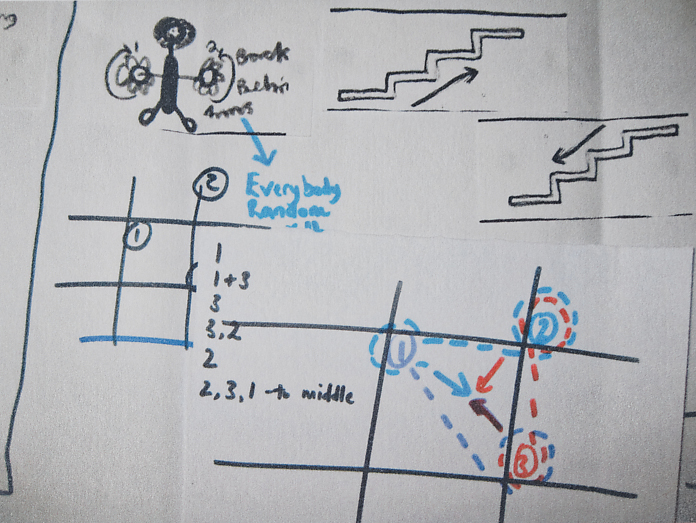 1 2 Back
Arms
Everybody
Random
2
1
1
1+3
3
3,2
2
2, 3, 1 - to middle
1
2
3